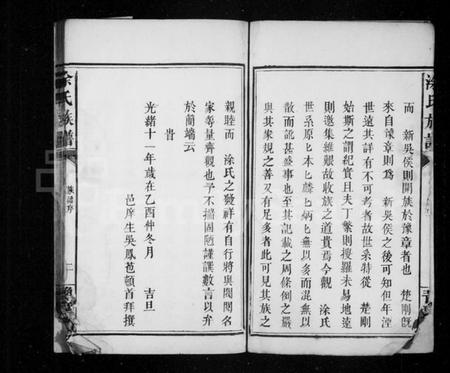 而　新吳侯則開族於豫章者也　楚剛旣
來自豫章則為　新吳侯之後可知但年湮
世遠其詳有不可考者故世系特從　楚剛
始斯之謂紀實且夫丁繁則搜羅未易地遠
則邀集維艱故收族之道貴焉今觀　涂氏
世系原原本本麟麟炳炳無以多而混無以
散而訛甚盛事也至其記載之周條例之嚴
與其家規之善又有足多者此可見其族之
親睦而　涂氏之發祥有自行將與閥閱名
家等量齊觀也予不揣固陋謹譔數言以弁
於簡端云
旹
光緒十一年歲在乙酉仲冬月　吉旦
邑庠生吳鳳苞頓首拜撰
涂氏族譜
族譜序
二
涂氏族譜